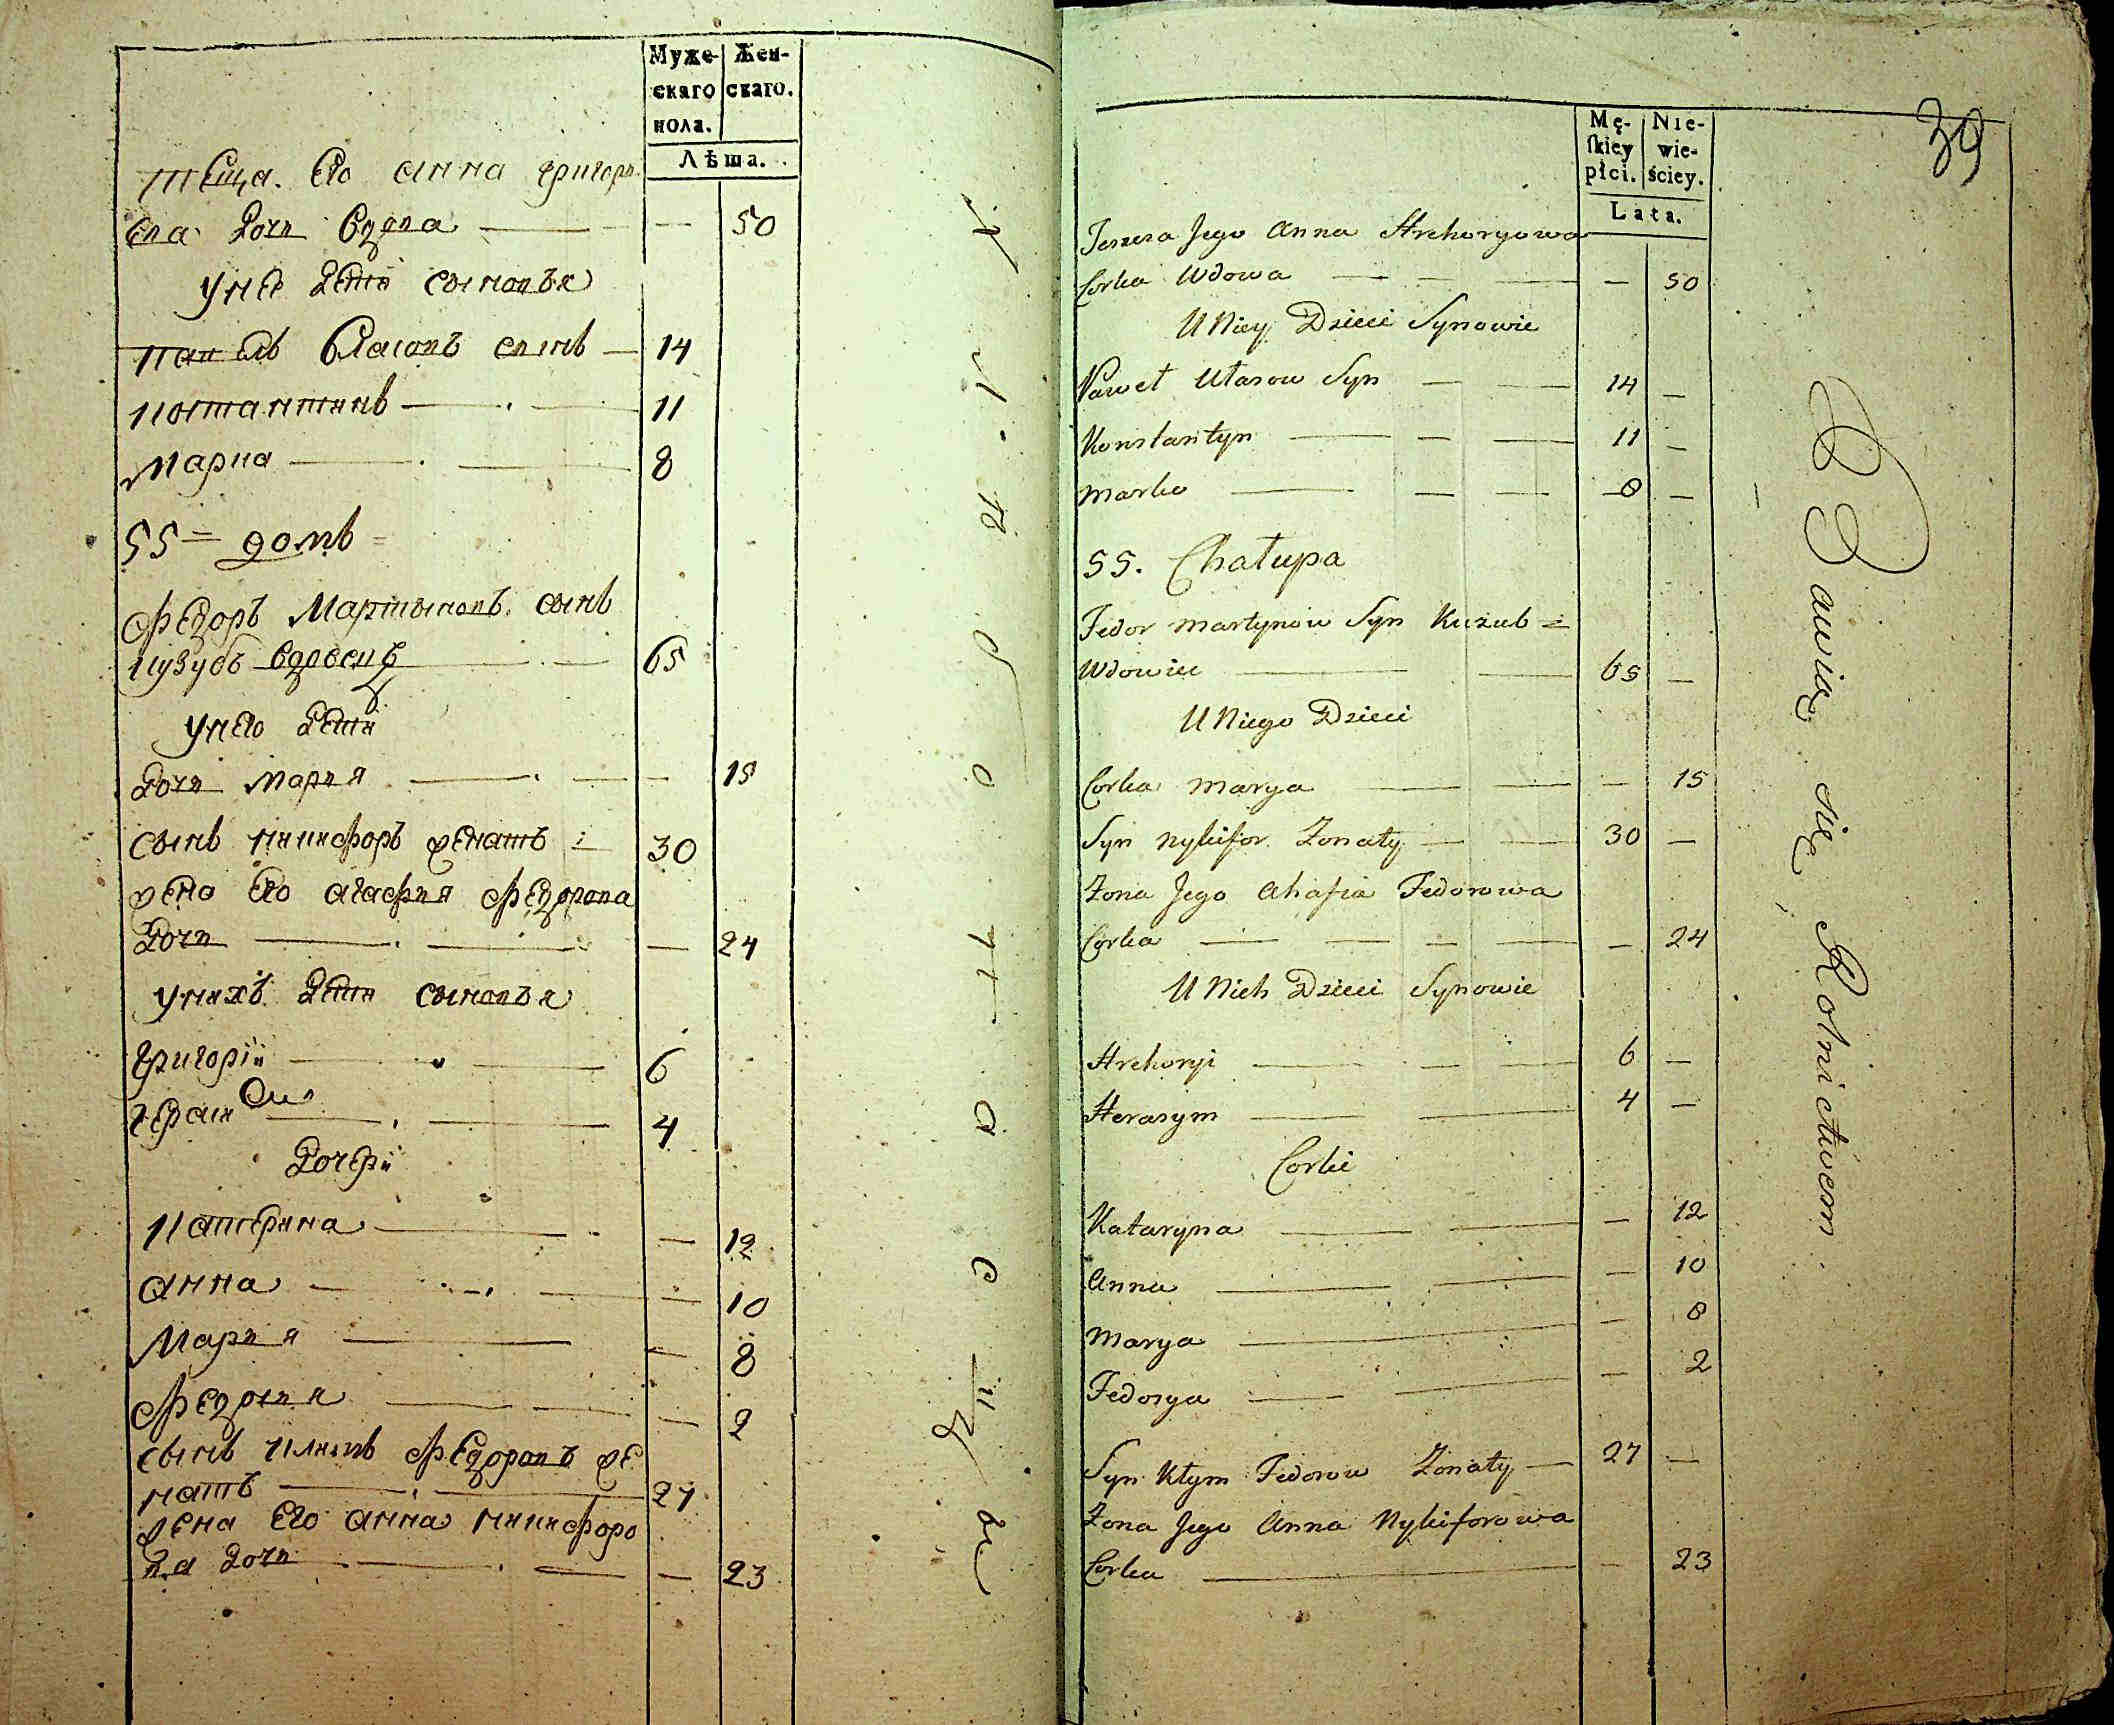 Муже- Жен-
скаго скаго.
пола.
Лѣта.
теща его анна григорь
ева дочь вдова — — 50
у неѣ дети сыновья
павелъ власовъ сынъ — 14
константинъ — 11
марко — 8
55 = домъ =
Федоръ Мартыновъ сынъ
кузубъ вдовецъ — 65
у него дети
дочь марья — — 15
сынъ никифоръ женатъ 30
жена его агафия Федорова
дочь — — 24
у нихъ дети сыновья
григорій — 6
герасим — 4
дочери
катерина — — 12
анна — — 10
марья — — 8
Федосья — — 2
сынъ климъ Федоровъ же
натъ — 27
жена его анна никифоро
ва дочь — — 23
39
Mę- Nie-
skiey wie-
płci. ściey.
Lata.
Jego Anna Hrehoryowa
Corka Wdowa — — 50
U Niey Dzieci Synowie
Paweł Ułasow Syn — 14 —
Konstantyn — 11 —
Marko — 8 —
55. Chałupa
Fedor Martynow Syn Kuzub =
Wdowiec — 65 —
U Niego Dzieci
Corka Marya — — 15
Syn Nykifor Żonaty — 30 —
Żona Jego Ahafia Fedorowa
Corka — — 24
U Nich Dzieci Synowie
Hrehoryi — 6 —
Herasym — 4 —
Corki
Kataryna — — 12
Anna — — 10
Marya — — 8
Fedosya — — 2
Syn Kłym Fedorow Żonaty — 27 —
Żona Jego Anna Nykiforowa
Corka — — 23
Bawią się Rolnictwem.